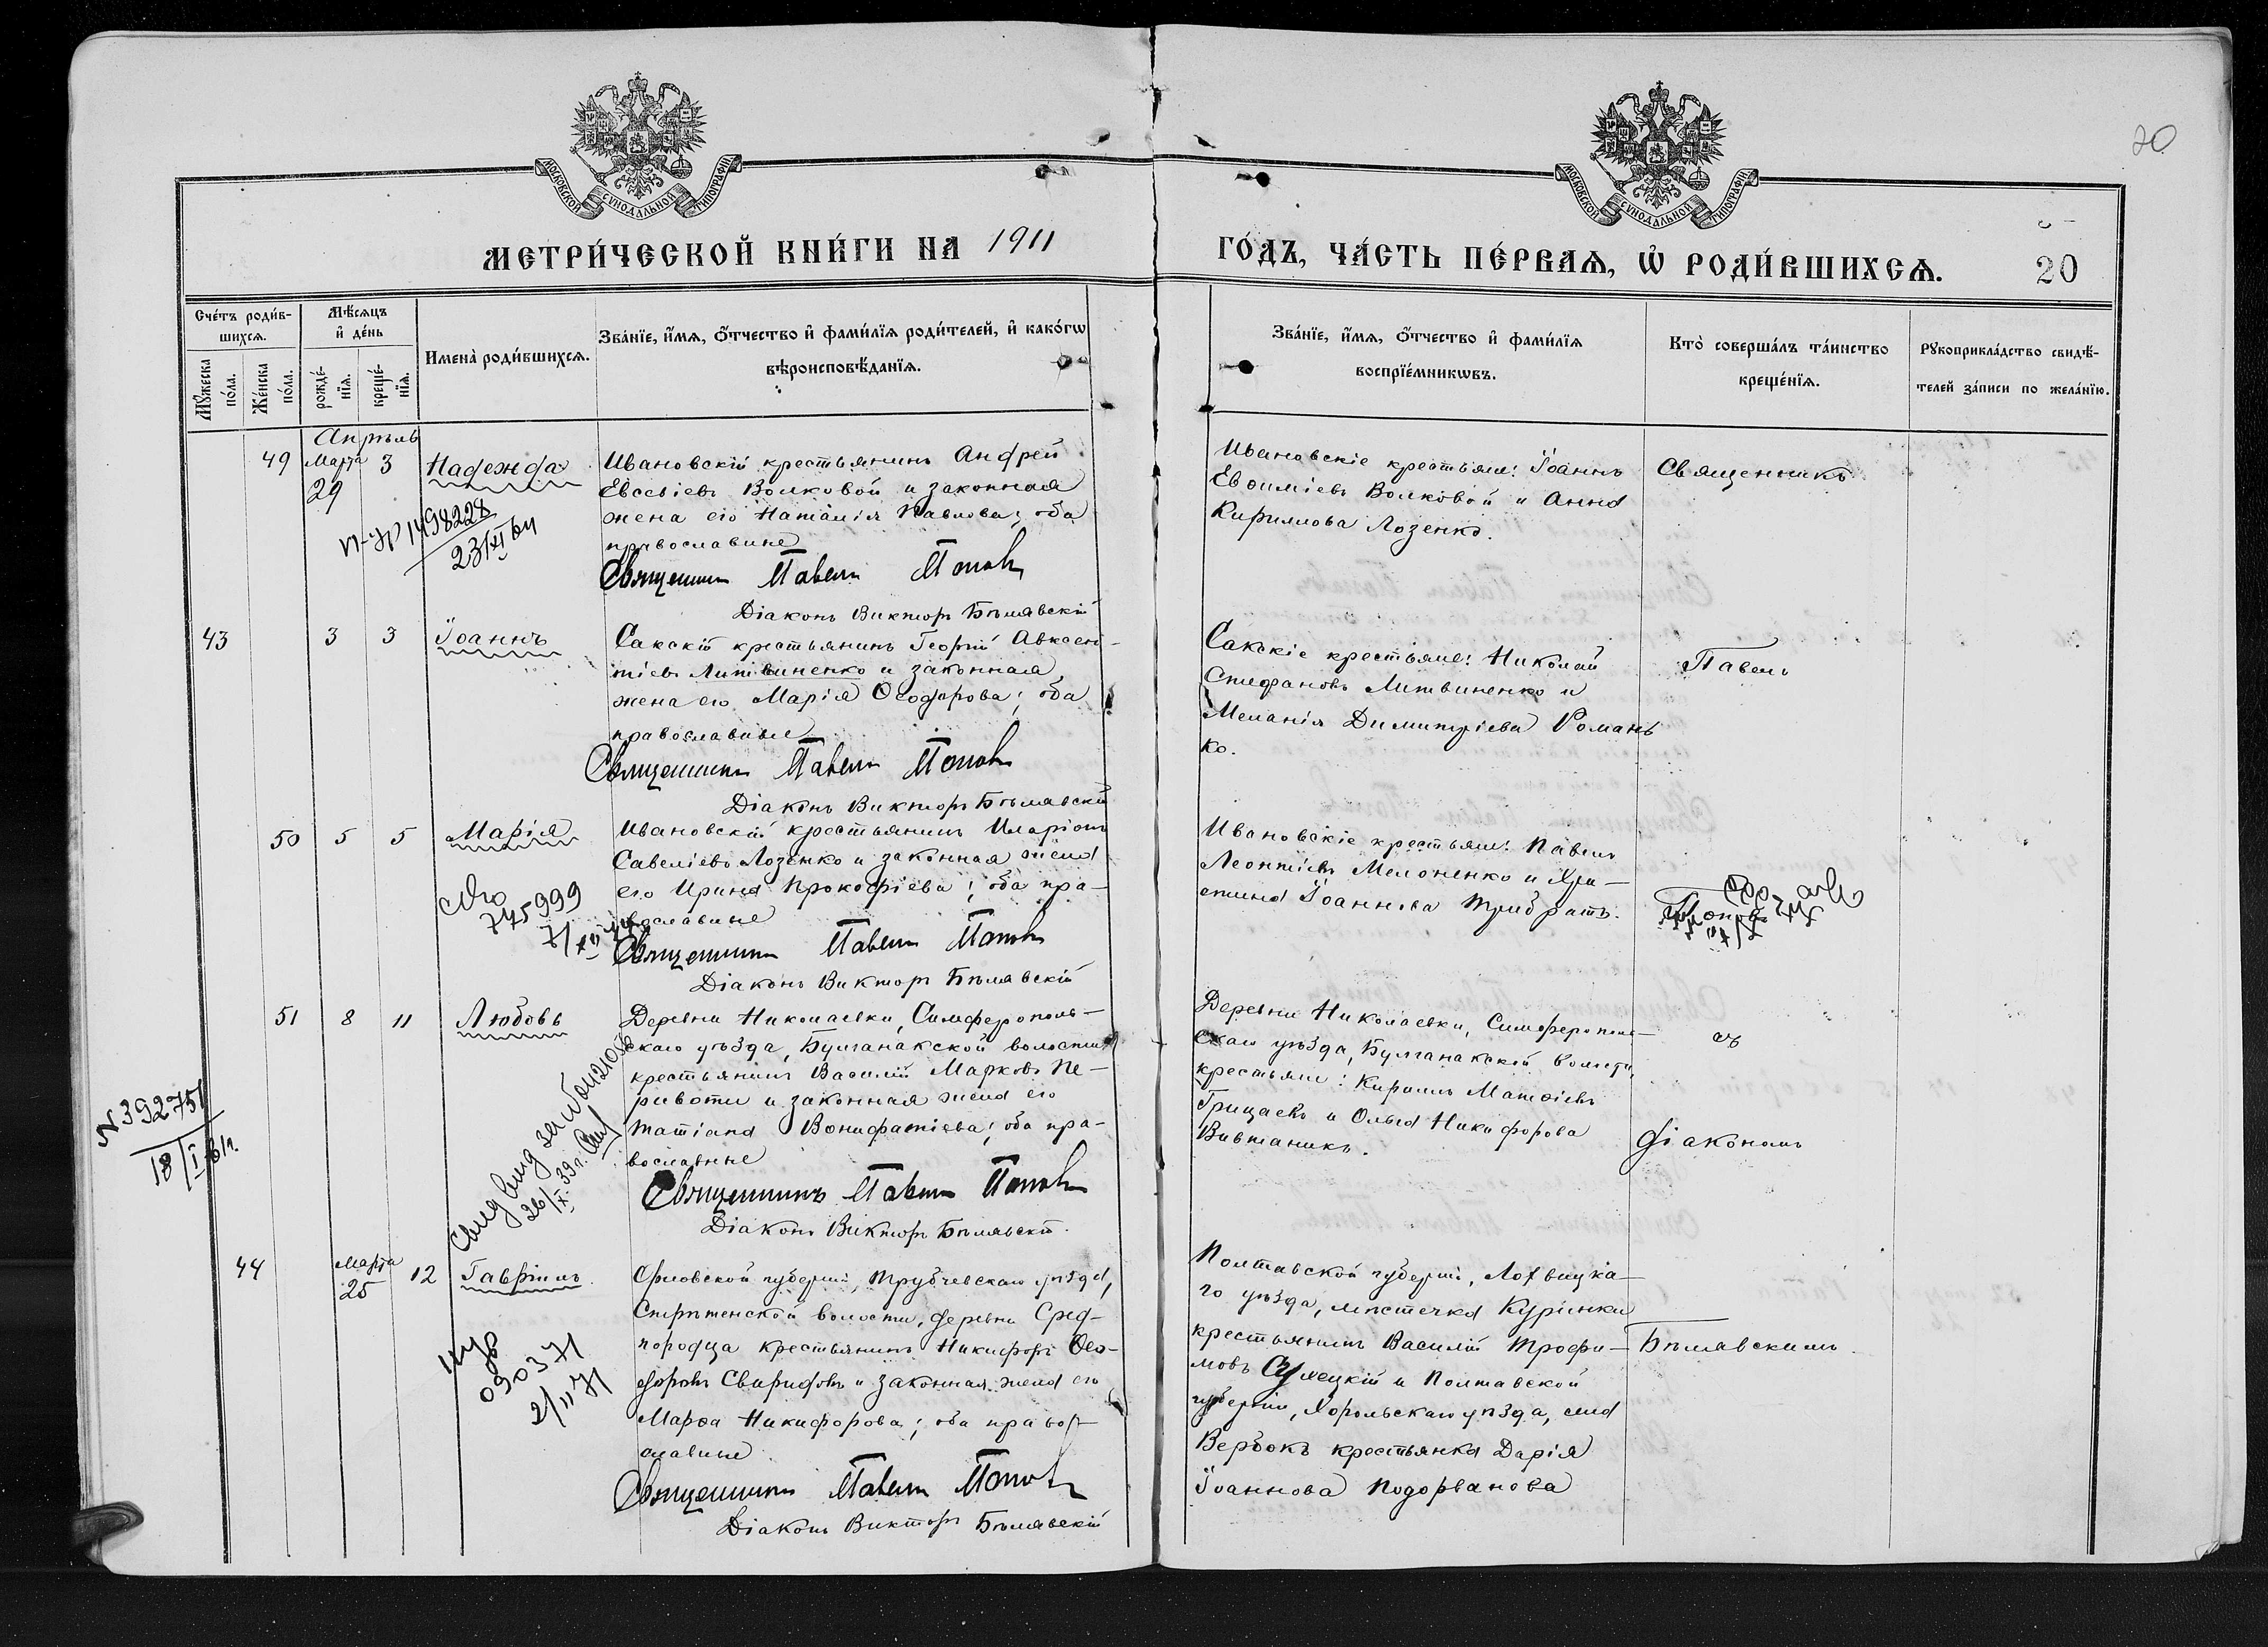 20
МОСКОВСКОЙ СУНОДАЛЬНОЙ ТИПОГРАФІИ
МОСКОВСКОЙ СУНОДАЛЬНОЙ ТИПОГРАФІИ
МЕТРИ́ЧЕСКОЙ КНИ́ГИ НА 1911
ГО́ДЪ, ЧА́СТЬ ПЕ́РВАѦ, Ѡ҆ РОДИ́ВШИХСѦ.
20
Сче́тъ роди́в-
шихсѧ.
Мꙋ́жеска по́ла.
Же́нска по́ла.
Мѣ́сѧцъ
и҆ де́нь
рожде́-
нїѧ.
креще́-
нїѧ.
Имена̀ роди́вшихсѧ.
Зва́нїе, и҆́мѧ, ѻ҆́тчество и҆ фами́лїѧ роди́телей, и҆ како́гѡ
вѣроисповѣ́данїѧ.
Зва́нїе, и҆́мѧ, ѻ҆́тчество и҆ фами́лїѧ
воспрїе́мникѡвъ.
Кто̀ соверша́лъ та́инство
креще́нїѧ.
Рꙋкоприкла́дство свидѣ́-
телей за́писи по жела́нїю.
Апрѣль
49
Марта
29
3
Надежда
Ивановскій крестьянинъ Андрей
Евсевіевъ Волковой и законная
жена его Наталія Павлова; оба
православные
Священникъ Павелъ Поповъ
Діаконъ Виктор Бѣлявскій
1498228
23/XI 64
Ивановскіе крестьяне: Іоаннъ
Евѳиміевъ Волковой и Анна
Кириллова Лозенко.
Священникъ
43
3
3
Іоаннъ
Сакскій крестьянинъ Георгій Авксен-
тіевъ Литвиненко и законная
жена его Марія Ѳеодорова; оба
православные
Священникъ Павелъ Поповъ
Діаконъ Виктор Бѣлявскій
Сакскіе крестьяне: Николай
Стефановъ Литвиненко и
Меланія Димитріева Романь
ко.
Павелъ
50
5
5
Марія
Ивановскій крестьянинъ Иларіонъ
Савеліевъ Лозенко и законная жена
его Ирина Прокофіева; оба пра-
вославные
Священникъ Павелъ Поповъ
Діаконъ Виктор Бѣлявскій
775999
Ивановскіе крестьяне: Павелъ
Леонтіевъ Мелоненко и Хри-
стина Іоаннова Трибратъ.
Поповъ
51
8
11
Любовь
Деревни Николаевки, Симферополь-
скаго уѣзда, Булганакской волости
крестьянинъ Василій Марковъ Пе-
ривоти и законная жена его
Татіана Вонифатіева; оба пра-
вославные
Священникъ Павелъ Поповъ
Діаконъ Виктор Бѣлявскій
N 392751
18/I-61г.
26/X-39 г.
Деревни Николаевки, Симферополь-
скаго уѣзда, Булганакской волости,
крестьяне: Кириллъ Матѳіевъ
Грицаевъ и Ольга Никифорова
Вивтаникъ.
съ
діакономъ
44
Марта
25
12
Гавріилъ
Орловской губерніи, Трубчевскаго уѣзда,
волости, деревни Сред-
городца крестьянинъ Никифоръ Ѳео-
доровъ Свиридовъ и законная жена его
Марѳа Никифорова; оба право-
славные
Священникъ Павелъ Поповъ
Діаконъ Виктор Бѣлявскій
030371
2/II 71
Полтавской губерніи, Лохвицка-
го уѣзда, мѣстечка Куринки
крестьянинъ Василій Трофи-
мовъ Сулецкій и Полтавской
губерніи, Хорольскаго уѣзда, села
Вербокъ крестьянка Дарія
Іоаннова Подорванова
Бѣлявскимъ